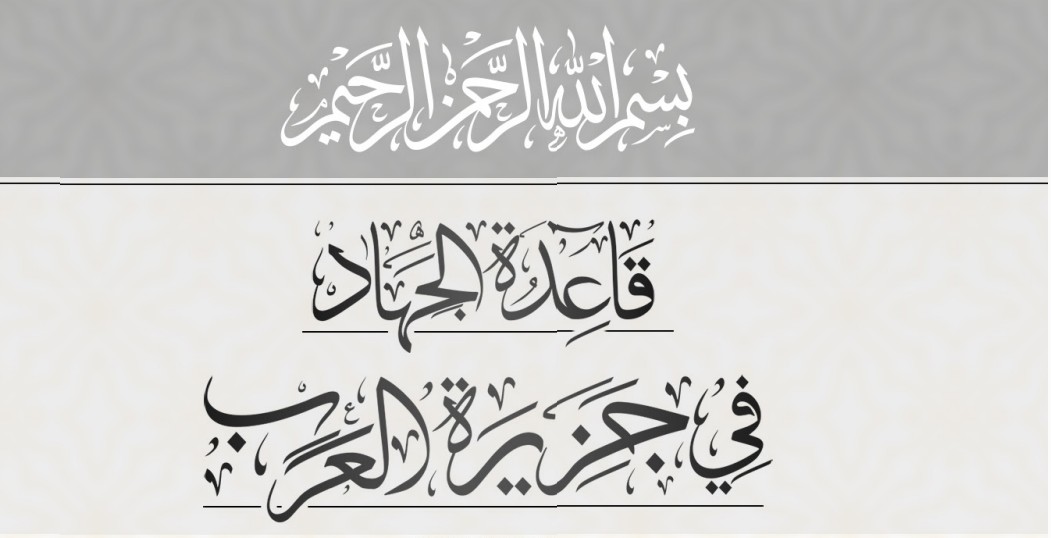 بِسْمِ اللهِ الرَّحْمٰنِ الرَّحِيمِ
قَاعِدَةُ الْجِهَادِ
فِي جَزِيرَةِ الْعَرَبِ